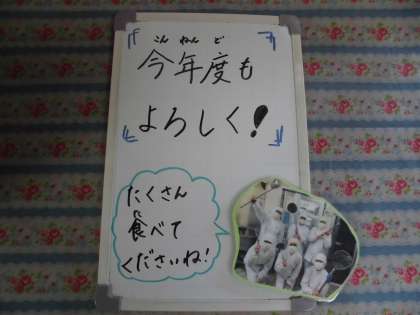 こんねんど
今年度も
よろしく!
たくさん
た
食べて
くださいね!